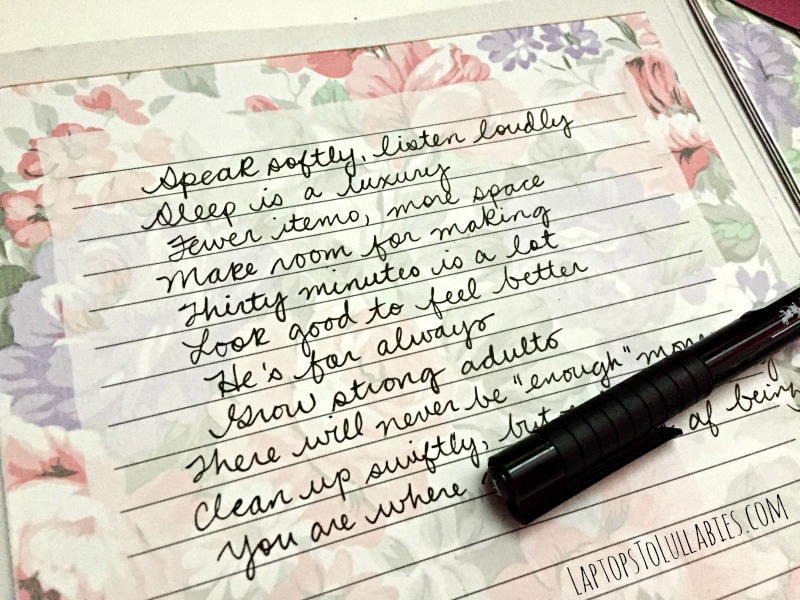 Speak softly, listen loudly
Sleep is a luxury
Fewer items, more space
Make room for making
Thirty minutes is a lot
Look good to feel better
He's for always
Grow strong adults
There will never be "enough"
Clean up swiftly, but of being
You are where
LAPTOPSTOLULLABIES.COM